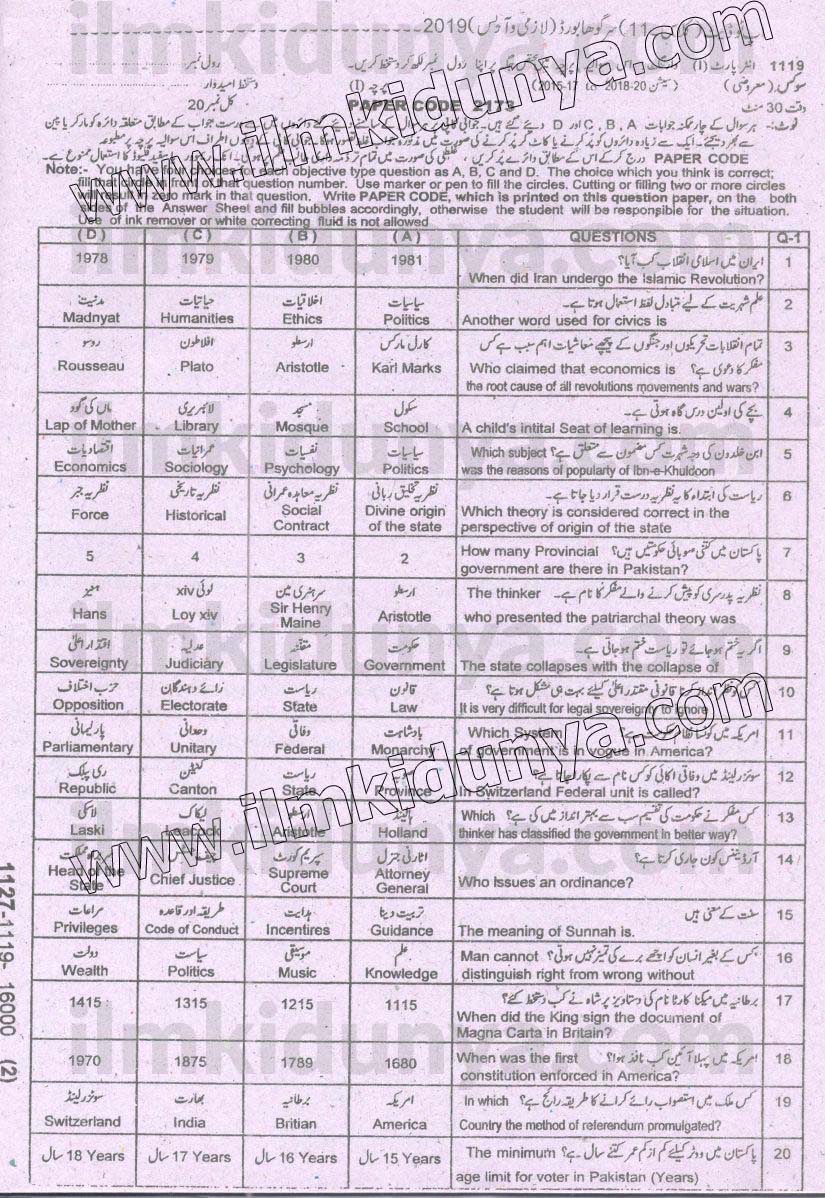 2019 (لازمی و آپس) سرگودھا بورڈ (11
1119 انٹر پارٹ (I) رول نمبر
سوکس (معروضی) (سیشن 2018-20 to 2015-17) پرچہ (I) دستخط امیدوار
وقت 30 منٹ PAPER CODE 2173 کل نمبر 20
نوٹ:- ہر سوال کے چار ممکنہ جوابات A ، B ، C اور D دیئے گئے ہیں۔ درست جواب کے مطابق متعلقہ دائرہ کو مارکر یا پین
سے بھر دیجئے۔ ایک سے زیادہ دائروں کو پُر کرنے یا کاٹ کر پُر کرنے کی صورت میں
PAPER CODE درج کر کے اس کے مطابق دائرے پُر کریں ، استعمال ممنوع ہے۔
Note:- You have four choices for each objective type question as A, B, C and D. The choice which you think is correct;
fill that circle in front of that question number. Use marker or pen to fill the circles. Cutting or filling two or more circles
will result in zero mark in that question. Write PAPER CODE, which is printed on this question paper, on the both
sides of the Answer Sheet and fill bubbles accordingly, otherwise the student will be responsible for the situation.
Use of ink remover or white correcting fluid is not allowed
( D ) ( C ) ( B ) ( A ) QUESTIONS Q-1
1978 1979 1980 1981 ایران میں اسلامی انقلاب کب آیا؟ 1
When did Iran undergo the Islamic Revolution?
مدنیت حیاتیات اخلاقیات سیاسیات علم شہریت کے لیے متبادل لفظ استعمال ہوتا ہے۔ 2
Madnyat Humanities Ethics Politics Another word used for civics is
روسو افلاطون ارسطو کارل مارکس تمام انقلابات تحریکوں اور جنگوں کے پیچھے معاشیات اہم سبب ہے کس 3
Rousseau Plato Aristotle Karl Marks Who claimed that economics is مفکر کا دعویٰ ہے؟
the root cause of all revolutions movements and wars?
ماں کی گود لائبریری مسجد سکول بچے کی اولین درس گاہ ہوتی ہے۔ 4
Lap of Mother Library Mosque School A child's intital Seat of learning is.
اقتصادیات عمرانیات نفسیات سیاسیات Which subject ابن خلدون کی وجہ شہرت کس مضمون سے متعلق ہے؟ 5
Economics Sociology Psychology Politics was the reasons of popularty of Ibn-e-Khuldoon
نظریہ جبر نظریہ تاریخی نظریہ معاہدہ عمرانی نظریہ تخلیق ربانی ریاست کی ابتداء کا یہ نظریہ درست قرار دیا جاتا ہے۔ 6
Force Historical Social Contract Divine origin of the state Which theory is considered correct in the
perspective of origin of the state
5 4 3 2 How many Provincial پاکستان میں کتنی صوبائی حکومتیں ہیں؟ 7
government are there in Pakistan?
ہینز لوئی xiv سر ہنری مین ارسطو The thinker نظریہ پدرسری کو پیش کرنے والے مفکر کا نام ہے۔ 8
Hans Loy xiv Sir Henry Maine Aristotle who presented the patriarchal theory was
اقتدار اعلیٰ عدلیہ مقننہ حکومت اگر یہ ختم ہو جائے تو ریاست ختم ہو جاتی ہے۔ 9
Sovereignty Judiciary Legislature Government The state collapses with the collapse of
حزب اختلاف رائے دہندگان ریاست قانون قانونی مقتدر اعلیٰ کیلئے بہت ہی مشکل ہوتا ہے؟ 10
Opposition Electorate State Law It is very difficult for legal sovereignty to ignore
پارلیمانی وحدانی وفاقی بادشاہت Which System امریکہ میں کونسا 11
Parliamentary Unitary Federal Monarchy of government is in vogue in America?
ری پبلک کنٹین ریاست سوئزرلینڈ میں وفاقی اکائی کو کس نام سے پکارا جاتا ہے؟ 12
Republic Canton State Province In Switzerland Federal unit is called?
لاسکی لیکاک ارسطو ہالینڈ Which کس مفکر نے حکومت کی تقسیم سب سے بہتر انداز میں کی ہے؟ 13
Laski Leacock Aristotle Holland thinker has classified the government in better way?
سپریم کورٹ اٹارنی جنرل آرڈیننس کون جاری کرتا ہے؟ 14
Head of the State Chief Justice Supreme Court Attorney General Who Issues an ordinance?
مراعات طریقہ اور قاعدہ ہدایت تربیت دینا سنت کے معنی ہیں 15
Privileges Code of Conduct Incentires Guidance The meaning of Sunnah is.
دولت سیاست موسیقی علم Man cannot جس کے بغیر انسان کو اچھے برے کی تمیز نہیں ہوتی؟ 16
Wealth Politics Music Knowledge distinguish right from wrong without
1415 1315 1215 1115 برطانیہ میں میگنا کارٹا نام کی دستاویز پر شاہ نے کب دستخط کئے؟ 17
When did the King sign the document of
Magna Carta in Britain?
1970 1875 1789 1680 When was the first امریکہ میں پہلا آئین کب نافذ ہوا؟ 18
constitution enforced in America?
سوئزرلینڈ بھارت برطانیہ امریکہ In which کس ملک میں استصواب رائے کرانے کا طریقہ رائج ہے؟ 19
Switzerland India Britian America Country the method of referendum promulgated?
18 Years سال 17 Years سال 16 Years سال 15 Years سال The minimum پاکستان میں ووٹر کیلئے کم از کم عمر کتنے سال ہے؟ 20
age limit for voter in Pakistan (Years)
1127-1119- 16000 (2)
www.ilmkidunya.com
www.ilmkidunya.com
ilmkidunya.com